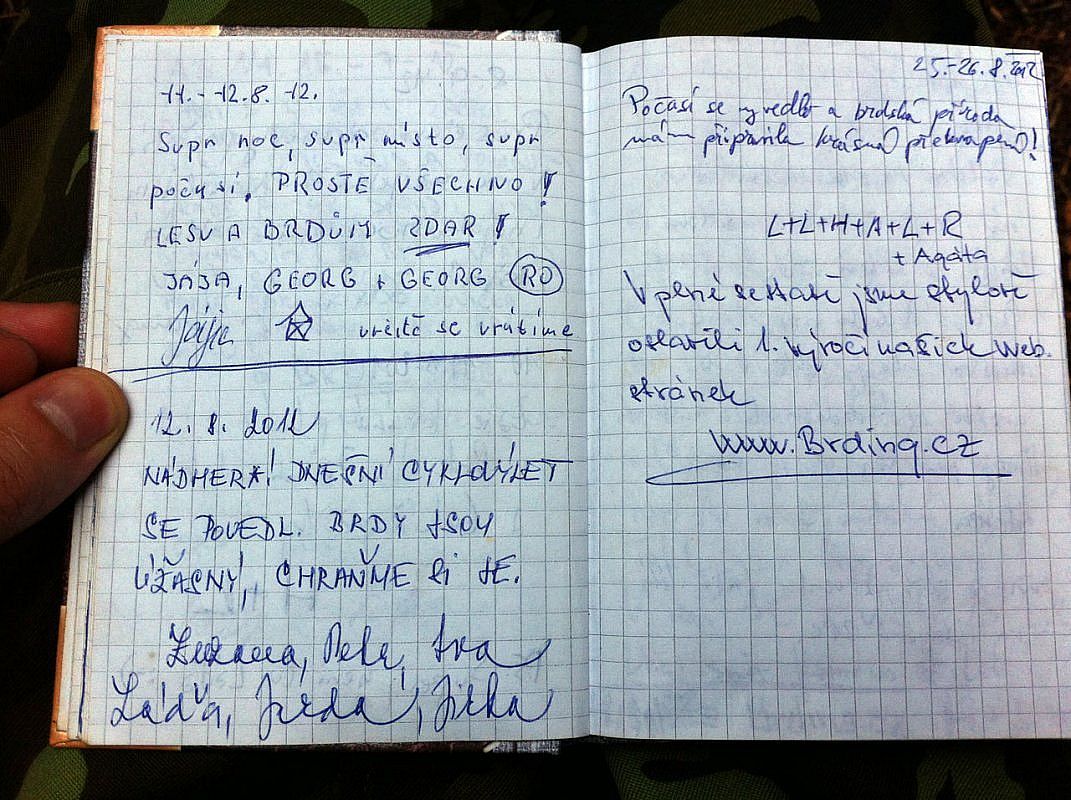 11. - 12.8. 12.
Supr noc, supr místo, supr
počasí, PROSTĚ VŠECHNO!
LESU A BRDŮM ZDAR!
JÁJA, GEORG + GEORG RO
Jája určitě se vrátíme
12. 8. 2012
NÁDHERA! DNEŠNÍ CYKLOVÝLET
SE POVEDL. BRDY JSOU
ÚŽASNÝ, CHRAŇME SI JE.
Zuzana, Iva
Láďa, Jirka
25.-26.8.2012
Počasí se vyvedlo a brdská příroda
nám připravila krásná překvapení!
L+L+H+A+L+R
+ Agáta
V plné sestavě jsme stylově
oslavili 1. výročí našich web.
stránek
www.Brding.cz